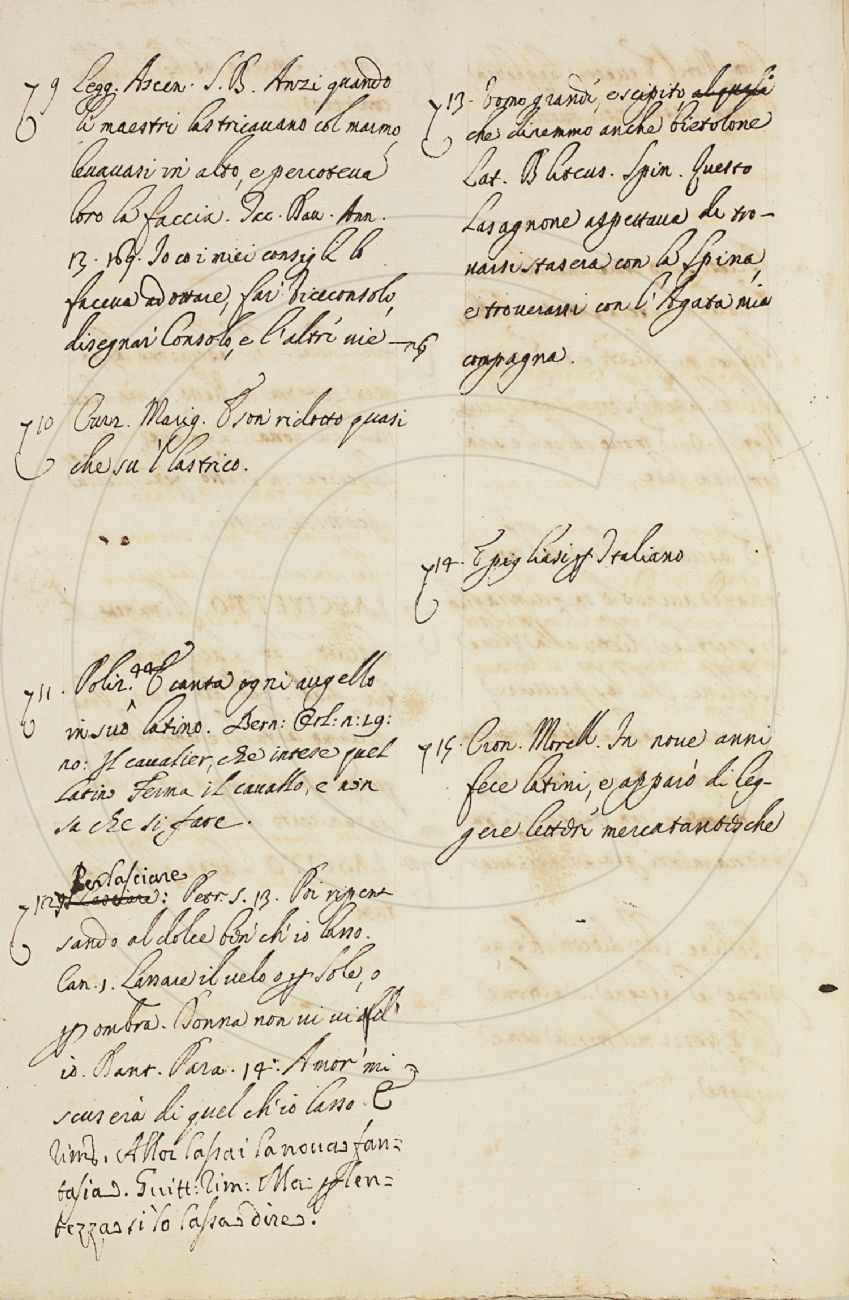 9 Legg. Ascen. S. B. Anzi quando
li maestri lastricavano col marmo,
levavasi in alto, e percoteva
loro la faccia. Tac. Dav. Ann.
13. 169. Io co i miei consigli lo
faceva adottare, far Viceconsolo,
disegnar Consolo, e l'altre vie
10 Curz. Marig. E son ridotto quasi
che su 'l lastrico.
11. Poliz. 44 E canta ogni augello
in suo latino. Bern: Orl: n: 19:
no: Il cavalier, che intese quel
latin Ferma il cavallo, e non
sa che si fare.
Per lasciare
12 : Petr. s. 13. Poi ripen
sando al dolce ben ch'io lasso.
Can. 1. Lassare il velo o per Sole, o
per ombra. Donna non vi vidd'
io. Dant. Para. 14: Amor mi
scuserà di quel ch'io lasso. E
Rim. Allor lassai la nova fan=
tasia. Guitt: Rim: Me: per len=
tezza si lo lassa dire.
13. Uomo grande, e scipito,
che diremmo anche bietolone
Lat. Bliteus. Spin. Questo
Lasagnone aspettava de tro-
varsi stasera con la Spina,
e troverassi con l'Agata mia
compagna.
14. E pigliasi per Italiano
15. Cron. Morell. In nove anni
fece latini, e apparò di leg-
gere lettere mercatantesche